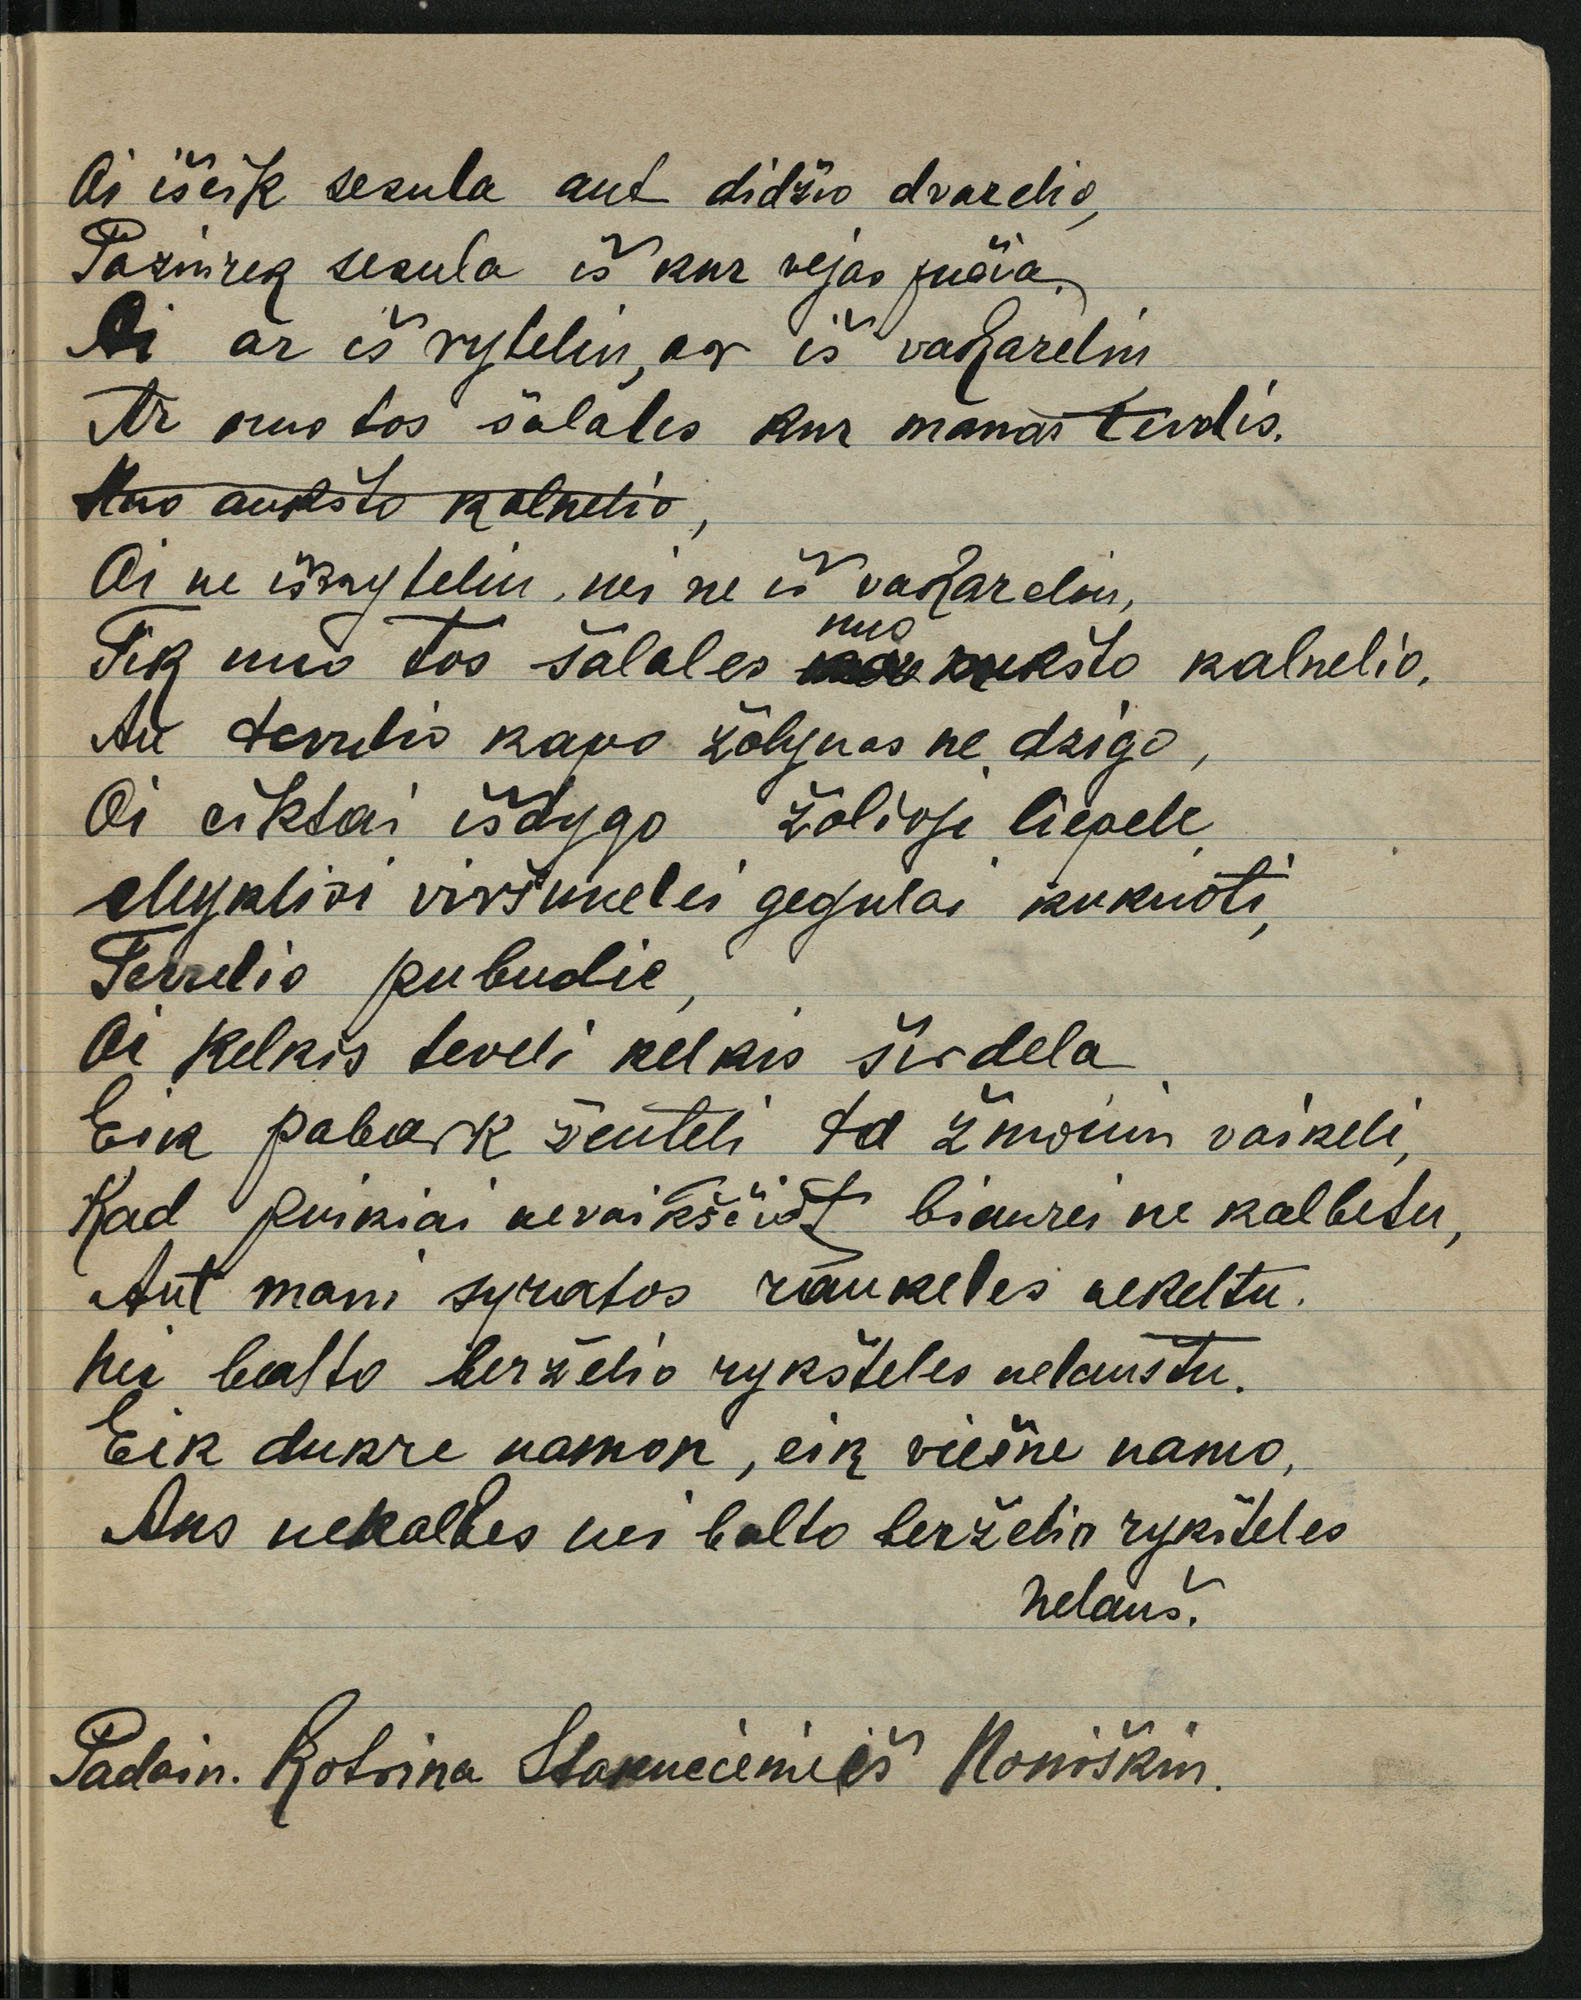 Oi išeik sesula ant didžio dvarelio,
Pazinrek sesula iš kur vejas pučia.
Oi ar iš ryteliu, ar iš vakareliu
Ar nuo tos šalales kur manas tevelis.
Nuo aukšto kalnelio,
Oi ne iš ryteliu, nei ne iš vakareliu,
Tik nuo tos šalales nuo aukšto kalnelio.
An tevulio kapo žolynas ne dzigo,
Oi tiktai išdygo žalioji liepele,
viršunelei gegulai kukuoti,
Tevelio pubudie,
Oi kelkis teveli kelkis širdela
Eik pabark ženteli ta žmoniu vaikeli,
Kad puikiai nevaikščiot biaurei ne kalbetu,
Ant mani syratos rankeles nekeltu.
Nei balto berželio rykšteles nelaustu.
Eik dukre namon, eik viešne namo,
Ans nekalbes nei balto berželio rykšteles
nelauš.
Padain. Kotrina iš Noniškiu.